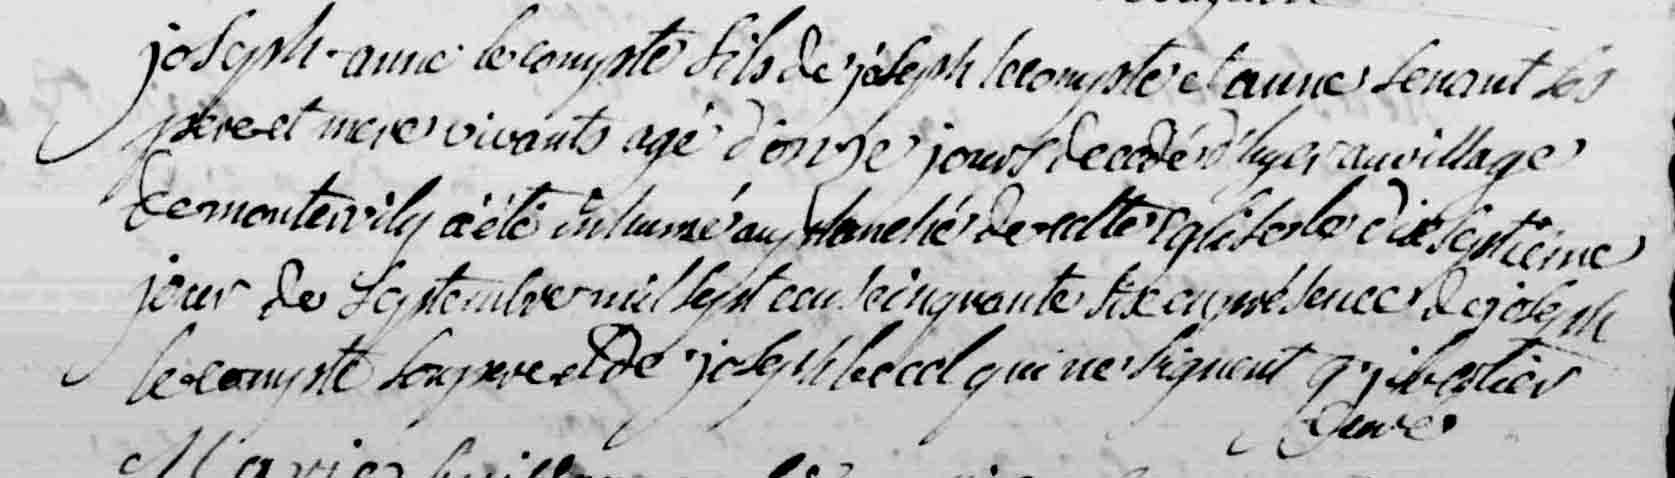 joseph-anne lecompte fils de joseph lecompte et anne senant ses
pere et mere vivants agé d'onze jours decedé d'hyer au village
de montervily a été inhumé au planché de cette eglise le dix septieme
jour de septembre mil sept cent cinquante six en presence de joseph
lecompte son pere et de joseph lecol qui ne signent